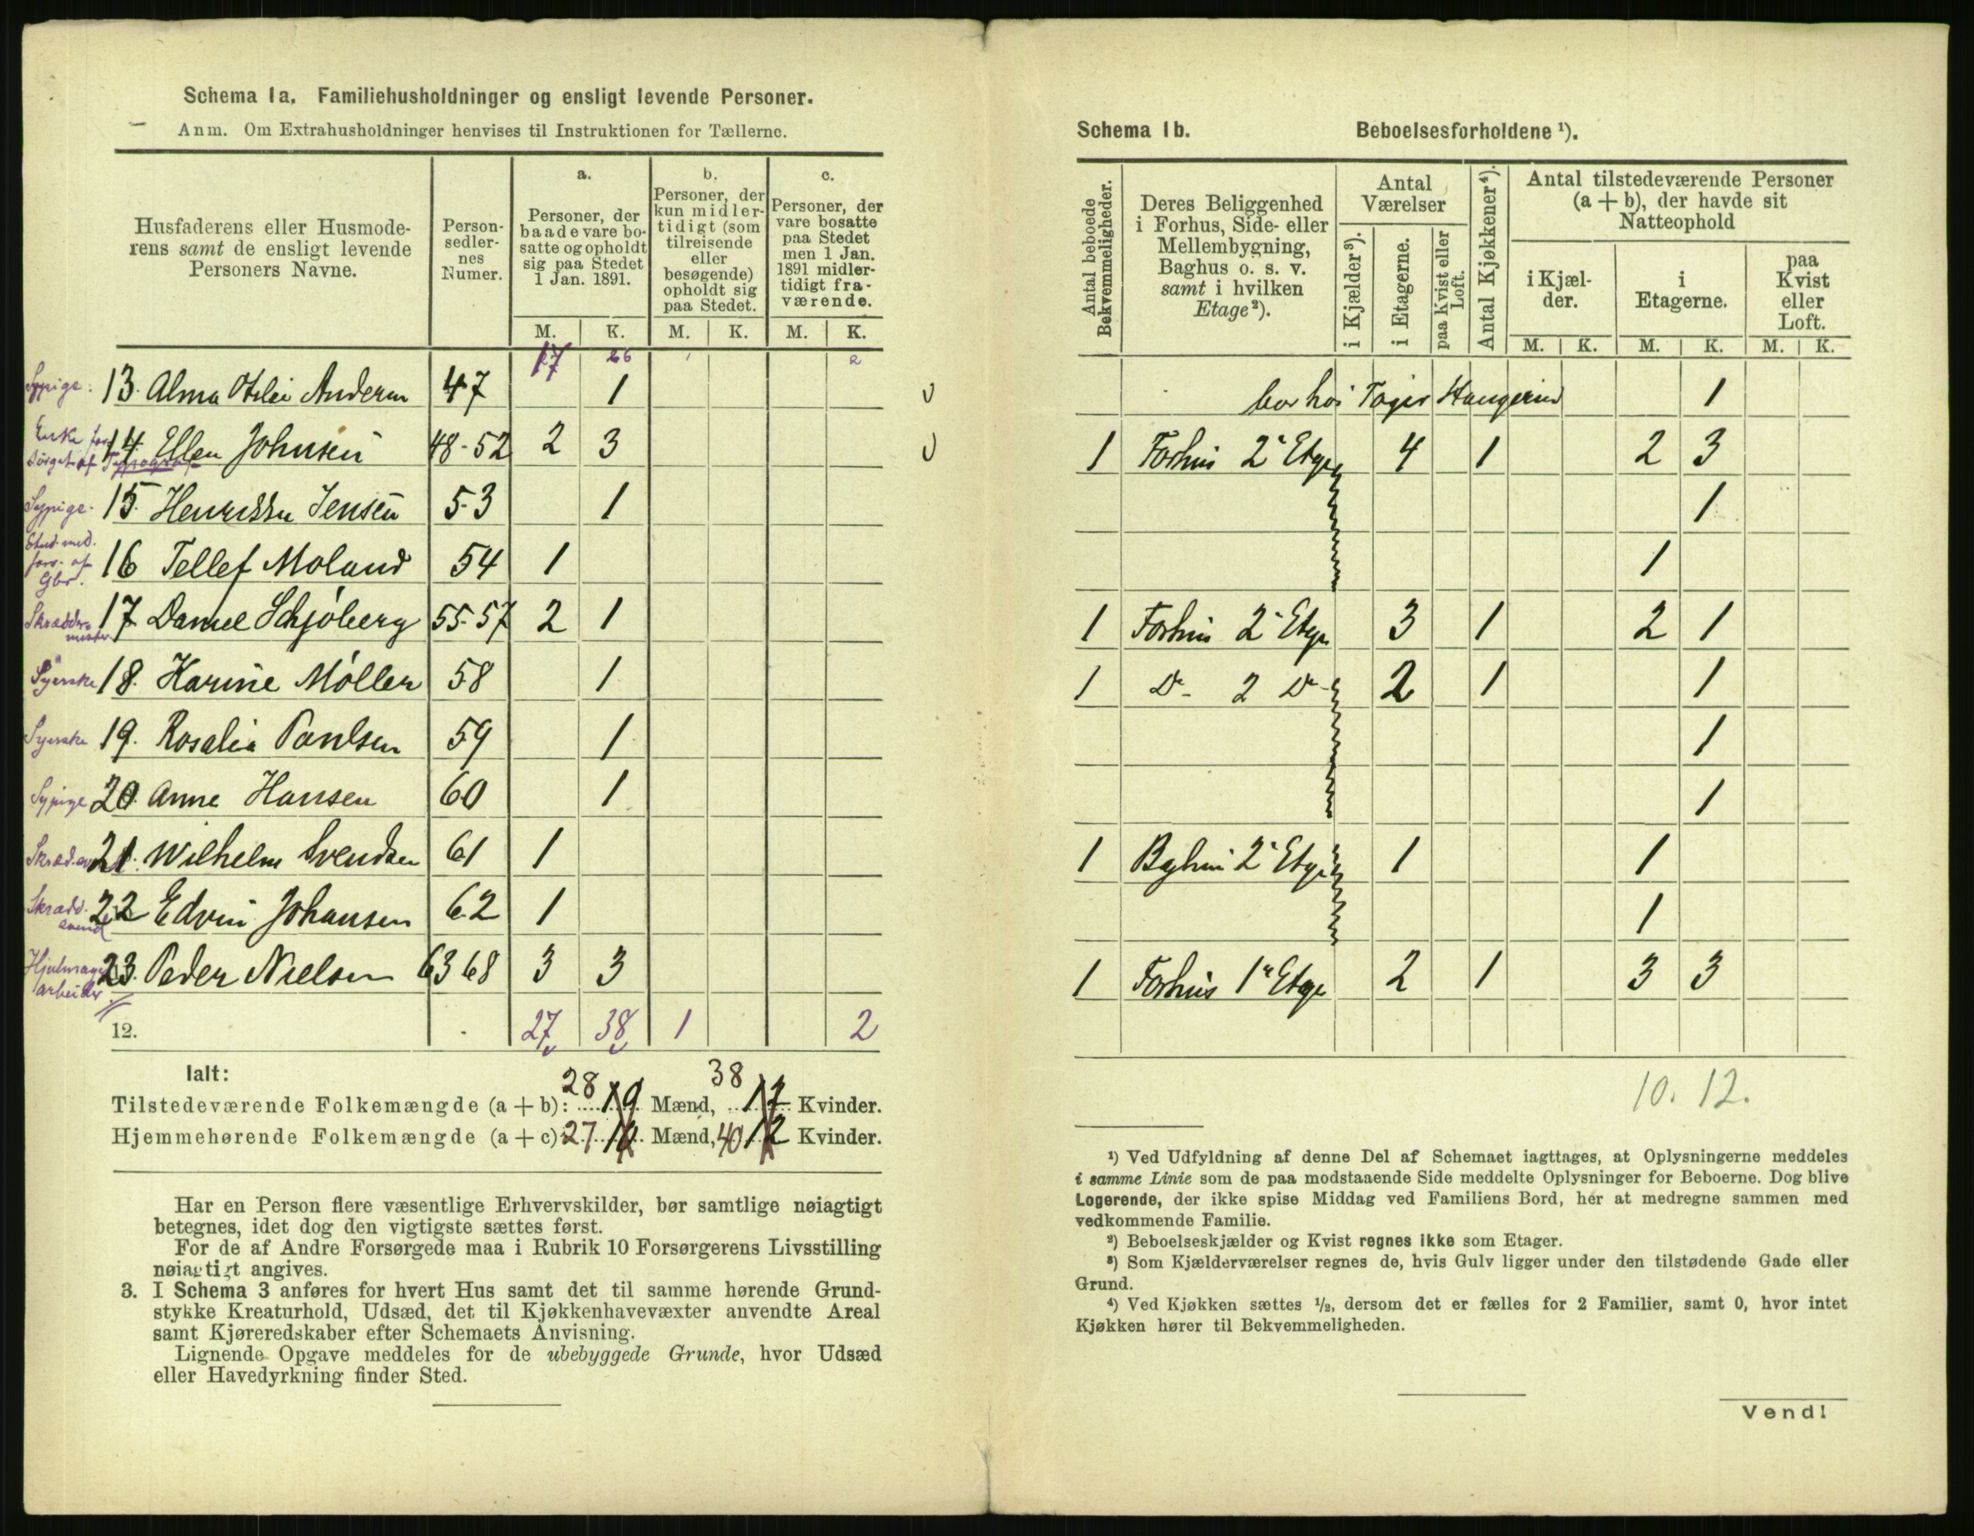 Schema 1a. Familiehusholdninger og ensligt levende Personer.
Anm. Om Extrahusholdninger henvises til Instruktionen for Tællerne.
Husfaderens eller Husmoderens samt de ensligt levende Personers Navne.
Personsedlernes Numer.
a. Personer, der baade vare bosatte og opholdt sig paa Stedet 1 Jan. 1891.
b. Personer, der kun midlertidigt (som tilreisende eller besøgende) opholdt sig paa Stedet.
c. Personer, der vare bosatte paa Stedet men 1 Jan. 1891 midlertidigt fraværende.
M. K. M. K. M. K.
17 26 2
Sypige. 13. Alma Otilie Andersen 47 1
Enke forsørget af Typograf 14. Ellen Johnsen 48-52 2 3
Sypige. 15. Jensen 53 1
Stud. med. fors. af Gbr. 16 Tellef Moland 54 1
Skræddermester 17 Daniel Schjøberg 55-57 2 1
Syerske 18. Karine Møller 58 1
Syerske 19. Rosalia Paulsen 59 1
Sypige 20. Anne Hansen 60 1
21. Wilhelm Svendsen 61 1
Skrædd. svend 22 Edvin Johansen 62 1
arbeider 23. Peder Nielsen 63 68 3 3
12. 27 38 1 2
Ialt:
Tilstedeværende Folkemængde (a + b): 28 19 Mænd, 38 17 Kvinder.
Hjemmehørende Folkemængde (a + c): 27 10 Mænd, 40 12 Kvinder.
Har en Person flere væsentlige Erhvervskilder, bør samtlige nøiagtigt
betegnes, idet dog den vigtigste sættes først.
For de af Andre Forsørgede maa i Rubrik 10 Forsørgerens Livsstilling
nøiagtigt angives.
3. I Schema 3 anføres for hvert Hus samt det til samme hørende Grund-
stykke Kreaturhold, Udsæd, det til Kjøkkenhavevæxter anvendte Areal
samt Kjøreredskaber efter Schemaets Anvisning.
Lignende Opgave meddeles for de ubebyggede Grunde, hvor Udsæd
eller Havedyrkning finder Sted.
Schema 1b. Beboelsesforholdene ¹).
Antal beboede Bekvemmeligheder.
Deres Beliggenhed i Forhus, Side- eller Mellembygning, Baghus o. s. v. samt i hvilken Etage²).
Antal Værelser
i Kjælder³).
i Etagerne.
paa Kvist eller Loft.
Antal Kjøkkener⁴).
Antal tilstedeværende Personer (a + b), der havde sit Natteophold
i Kjælder.
i Etagerne.
paa Kvist eller Loft.
M. K. M. K. M. K.
bor hos 1
1 Forhus 2 Etage 4 1 2 3
1
1
1 Forhus 2 Etage 3 1 2 1
1 Do 2 Do 2 1 1
1
1
1 Baghus 2 Etage 1 1
1
1 Forhus 1 Etage 2 1 3 3
10. 12.
¹) Ved Udfyldning af denne Del af Schemaet iagttages, at Oplysningerne meddeles
i samme Linie som de paa modstaaende Side meddelte Oplysninger for Beboerne. Dog blive
Logerende, der ikke spise Middag ved Familiens Bord, her at medregne sammen med
vedkommende Familie.
²) Beboelseskjælder og Kvist regnes ikke som Etager.
³) Som Kjælderværelser regnes de, hvis Gulv ligger under den tilstødende Gade eller
Grund.
⁴) Ved Kjøkken sættes ½, dersom det er fælles for 2 Familier, samt 0, hvor intet
Kjøkken hører til Bekvemmeligheden.
Vend!